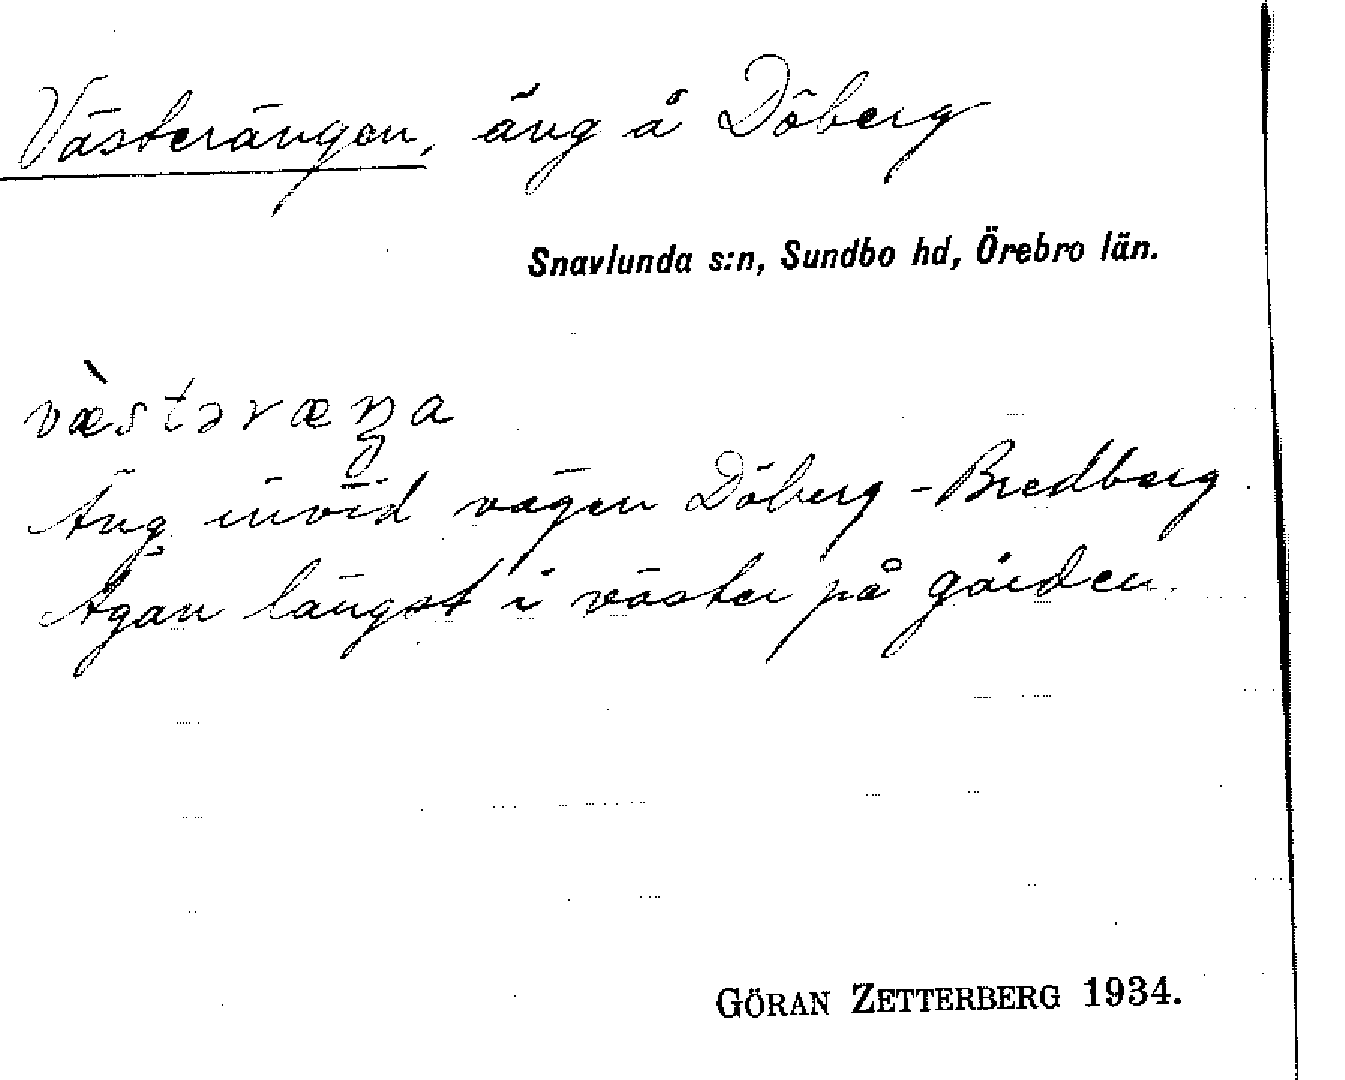 Västerängen, äng å Döberg
Snavlunda s:n, Sundbo hd, Örebro län.
væ̀stəræŋa
Äng invid vägen Döberg - Bredberg
Ägan längst i väster på gården.
GÖRAN ZETTERBERG 1934.